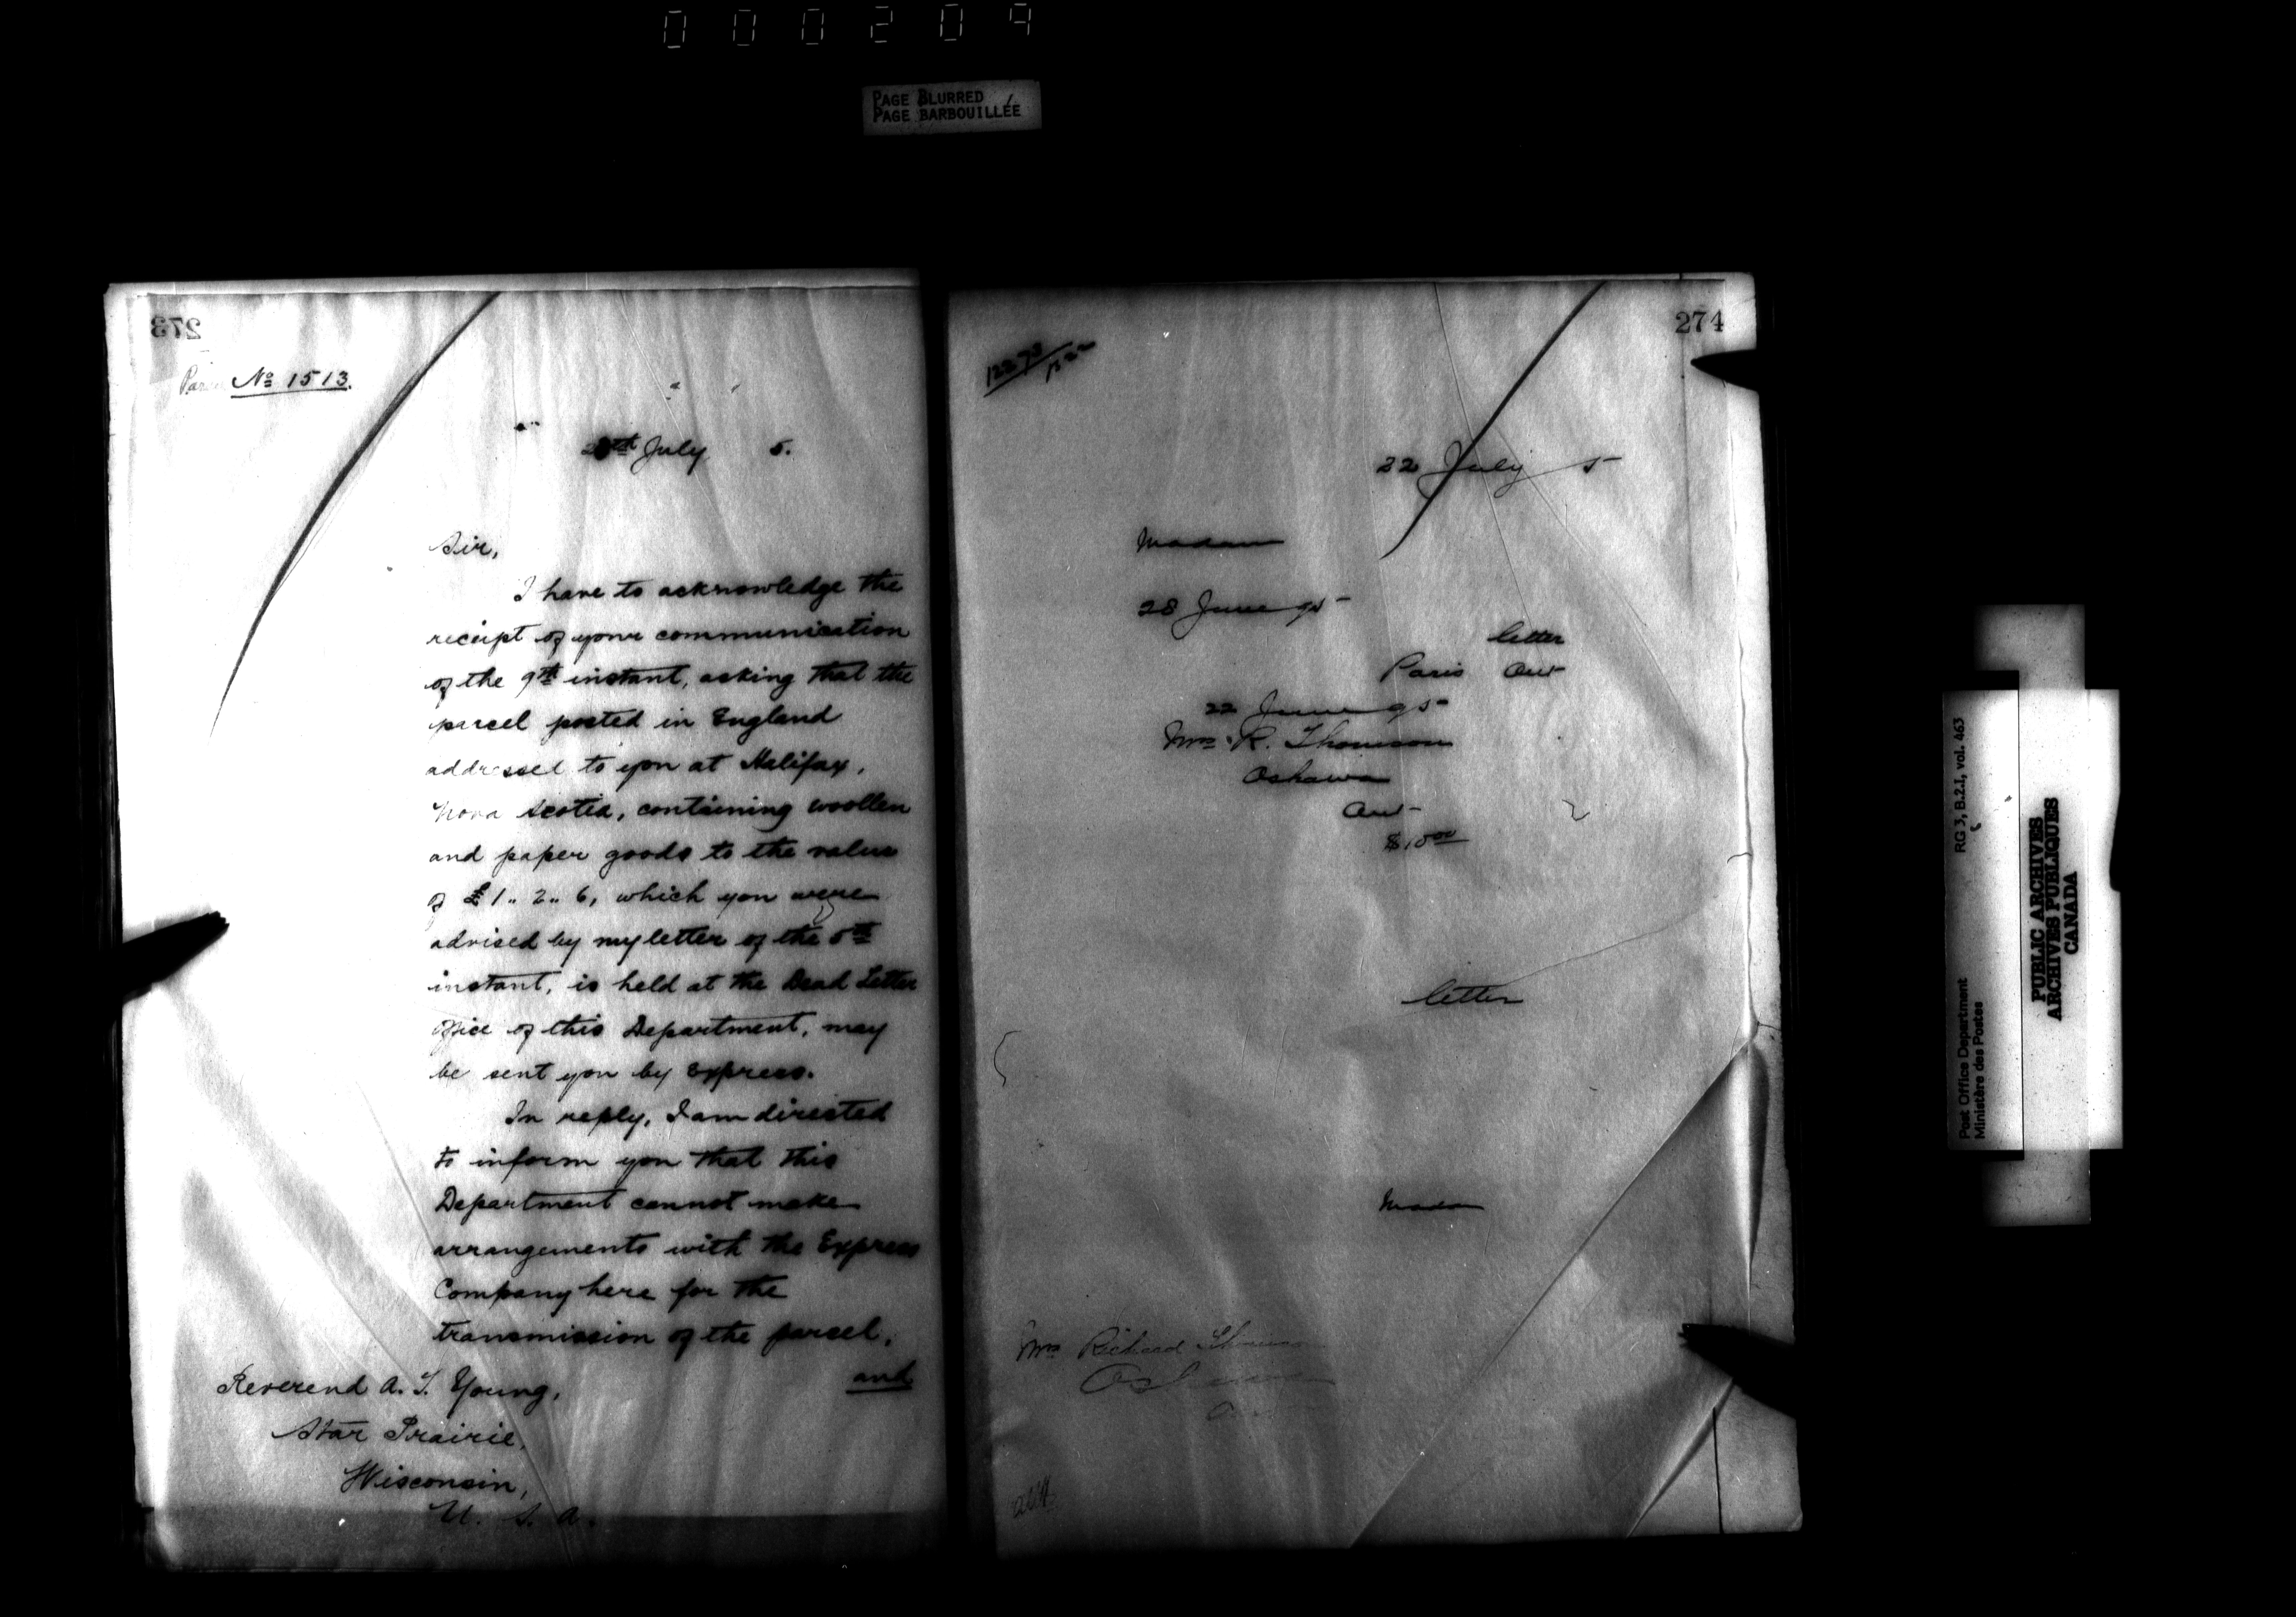 000209
PAGE BLURRED
PAGE BARBOUILLÉE
273
Parcel No 1513.
July 5.
Sir,
I have to acknowledge the
receipt of your communication
of the 9th instant, asking that the
parcel posted in England
addressed to you at Halifax,
Nova Scotia, containing woollen
and paper goods to the value
of £1.. 2.. 6, which you were
advised by my letter of the 5th
instant, is held at the Dead Letter
Office of this Department, may
be sent you by Express.
In reply, I am directed
to inform you that this
Department cannot make
arrangements with the Express
Company here for the
transmission of the parcel,
and
Reverend A. T. Young,
Star Prairie,
Wisconsin,
U. S. A.
274
22 July 5
Madam
28 June 95
letter
Paris Ont
22 June 95
Mrs R. Thomson
Oshawa
Ont
$10.00
letter
Madam
Mrs Richard Thomson
Oshawa
Ont
RG 3, B.2.I, vol. 463
Post Office Department
Ministère des Postes
PUBLIC ARCHIVES
ARCHIVES PUBLIQUES
CANADA